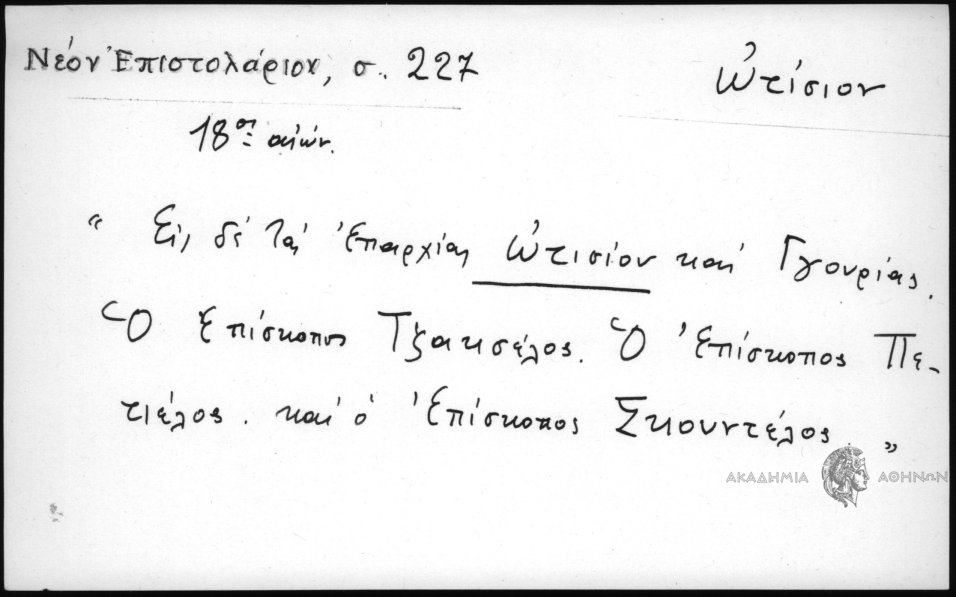 Νέον Ἐπιστολάριον, σ. 227
Ὠτίσιον
18ος αἰών.
“ Εἰς δὲ τὰς Ἐπαρχίας Ὠτισίον καὶ Γγουρίας.
Ὁ Ἐπίσκοπος Τζακσέλος. Ὁ Ἐπίσκοπος Πε-
τιέλος. καὶ ὁ Ἐπίσκοπος Σκουντέλος. „
ΑΚΑΔΗΜΙΑ ΑΘΗΝΩΝ